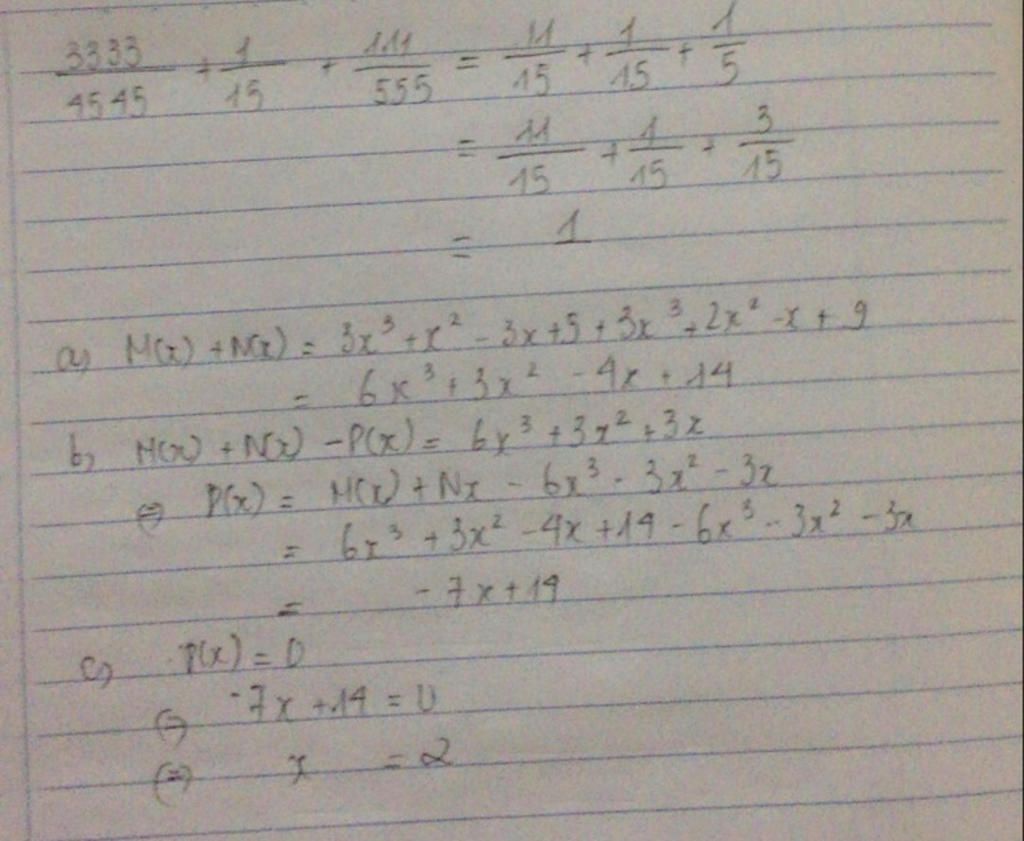 3333/4545 + 1/15 + 111/555 = 11/15 + 1/15 + 1/5
= 11/15 + 1/15 + 3/15
= 1
a) M(x) + N(x) = 3x³ + x² - 3x + 5 + 3x³ + 2x² - x + 9
= 6x³ + 3x² - 4x + 14
b) M(x) + N(x) - P(x) = 6x³ + 3x² + 3x
⇔ P(x) = M(x) + Nx - 6x³ - 3x² - 3x
= 6x³ + 3x² - 4x + 14 - 6x³ - 3x² - 3x
= -7x + 14
c) P(x) = 0
⇔ -7x + 14 = 0
⇔ x = 2